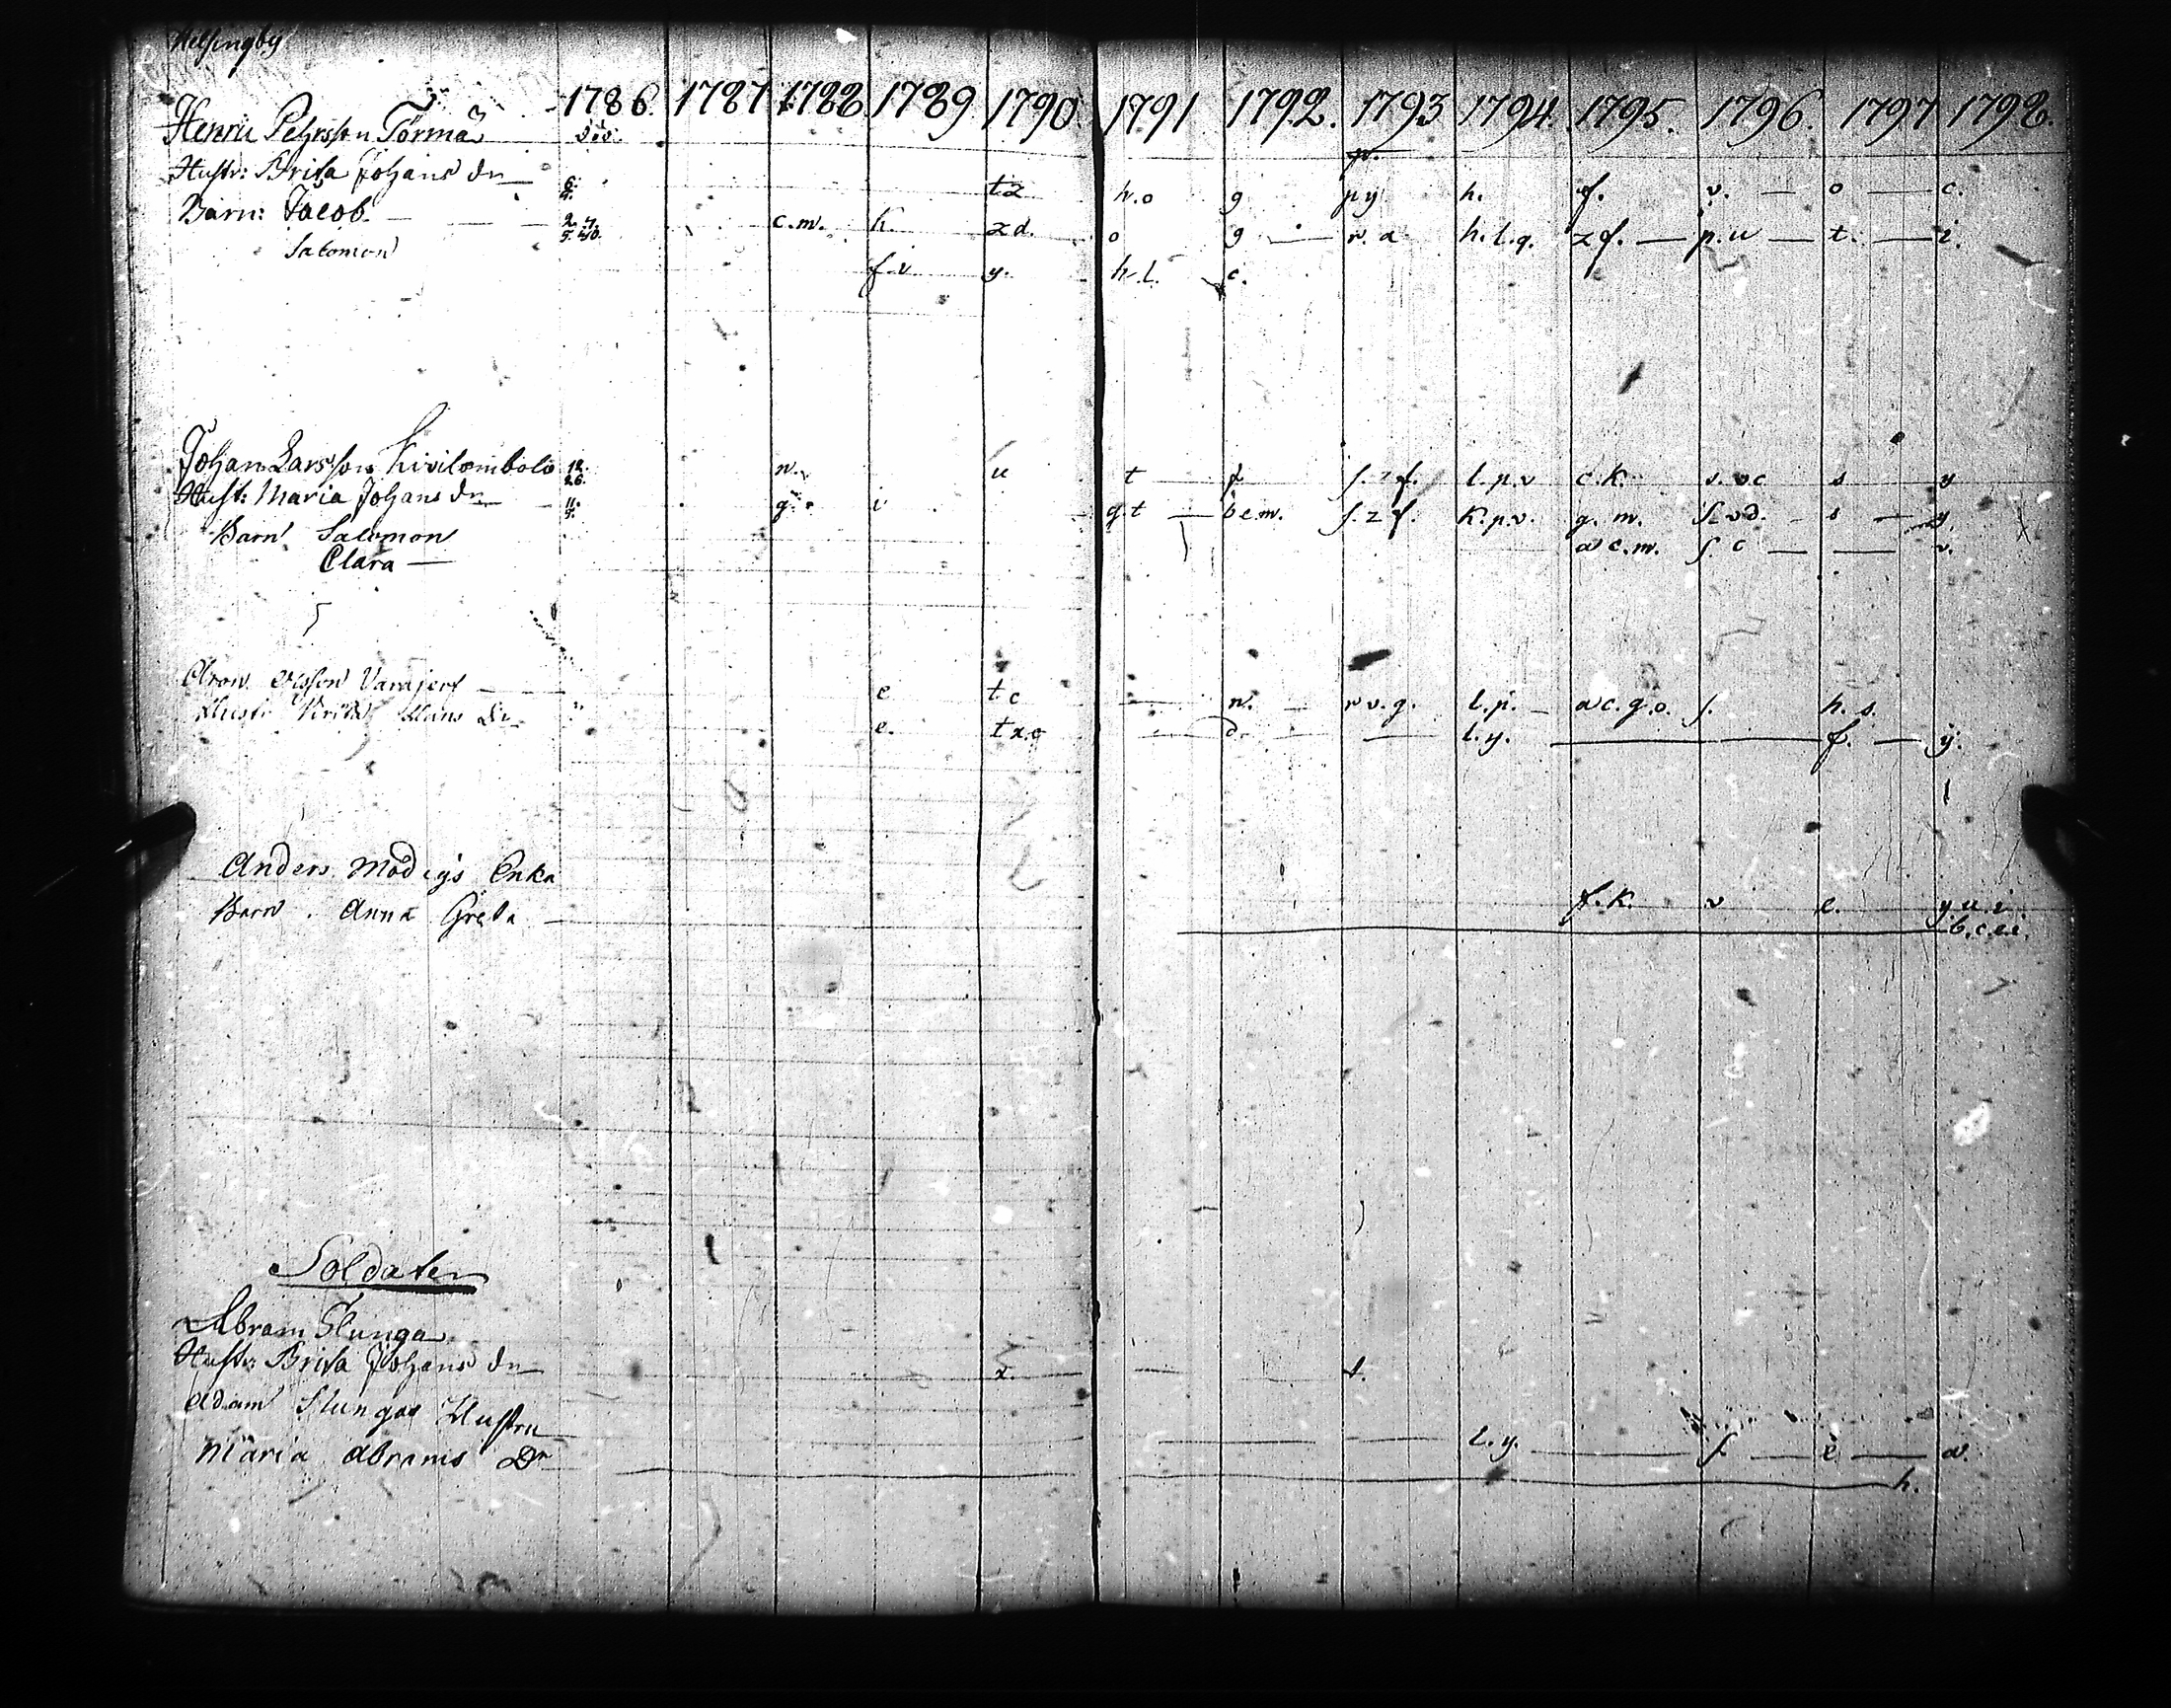 Helsingby
1786. 1787 1788 1789 1790. 1791 1792. 1793 1794. 1795. 1796. 1797 1798.
Henric Pehrsson Törmä
p.
Hustr: Brita Johans dr t z h.o g py h. f. v. — o — c.
Barn: Jacob — c.m. k. z d. o g — r. a h.l.q. z f. — p.u — t. — i.
Salomon f v y. h.l. c.
Johan Larsson Kivilombolo 12. 26. n. u t f s. z f. l.p.v c.k. s. v c s y
Hust: Maria Johans dr g. i g.t — b e m. s. z f. k.p.v. g. m. s. v d. — s — y.
Barn Salomon a c.m. s c — — v.
Clara —
Aron Ersson Varajerf — e t c — n. — r v.g. l.p. — a c.g.o. s. h. s.
Hustr Brita Hans dr e. t x.o — d. — — l.y. — f. — y.
Anders Modigs Enka f.k. v e. y.u.i.
Barn. Anna Greta — b.c.e.i.
Soldater
Abram Slunga
Hustr: Brita Johans dr x. — s.
Adam Slungas Hustru
Maria Abrams Dr l.y. — s — e — a.
h.